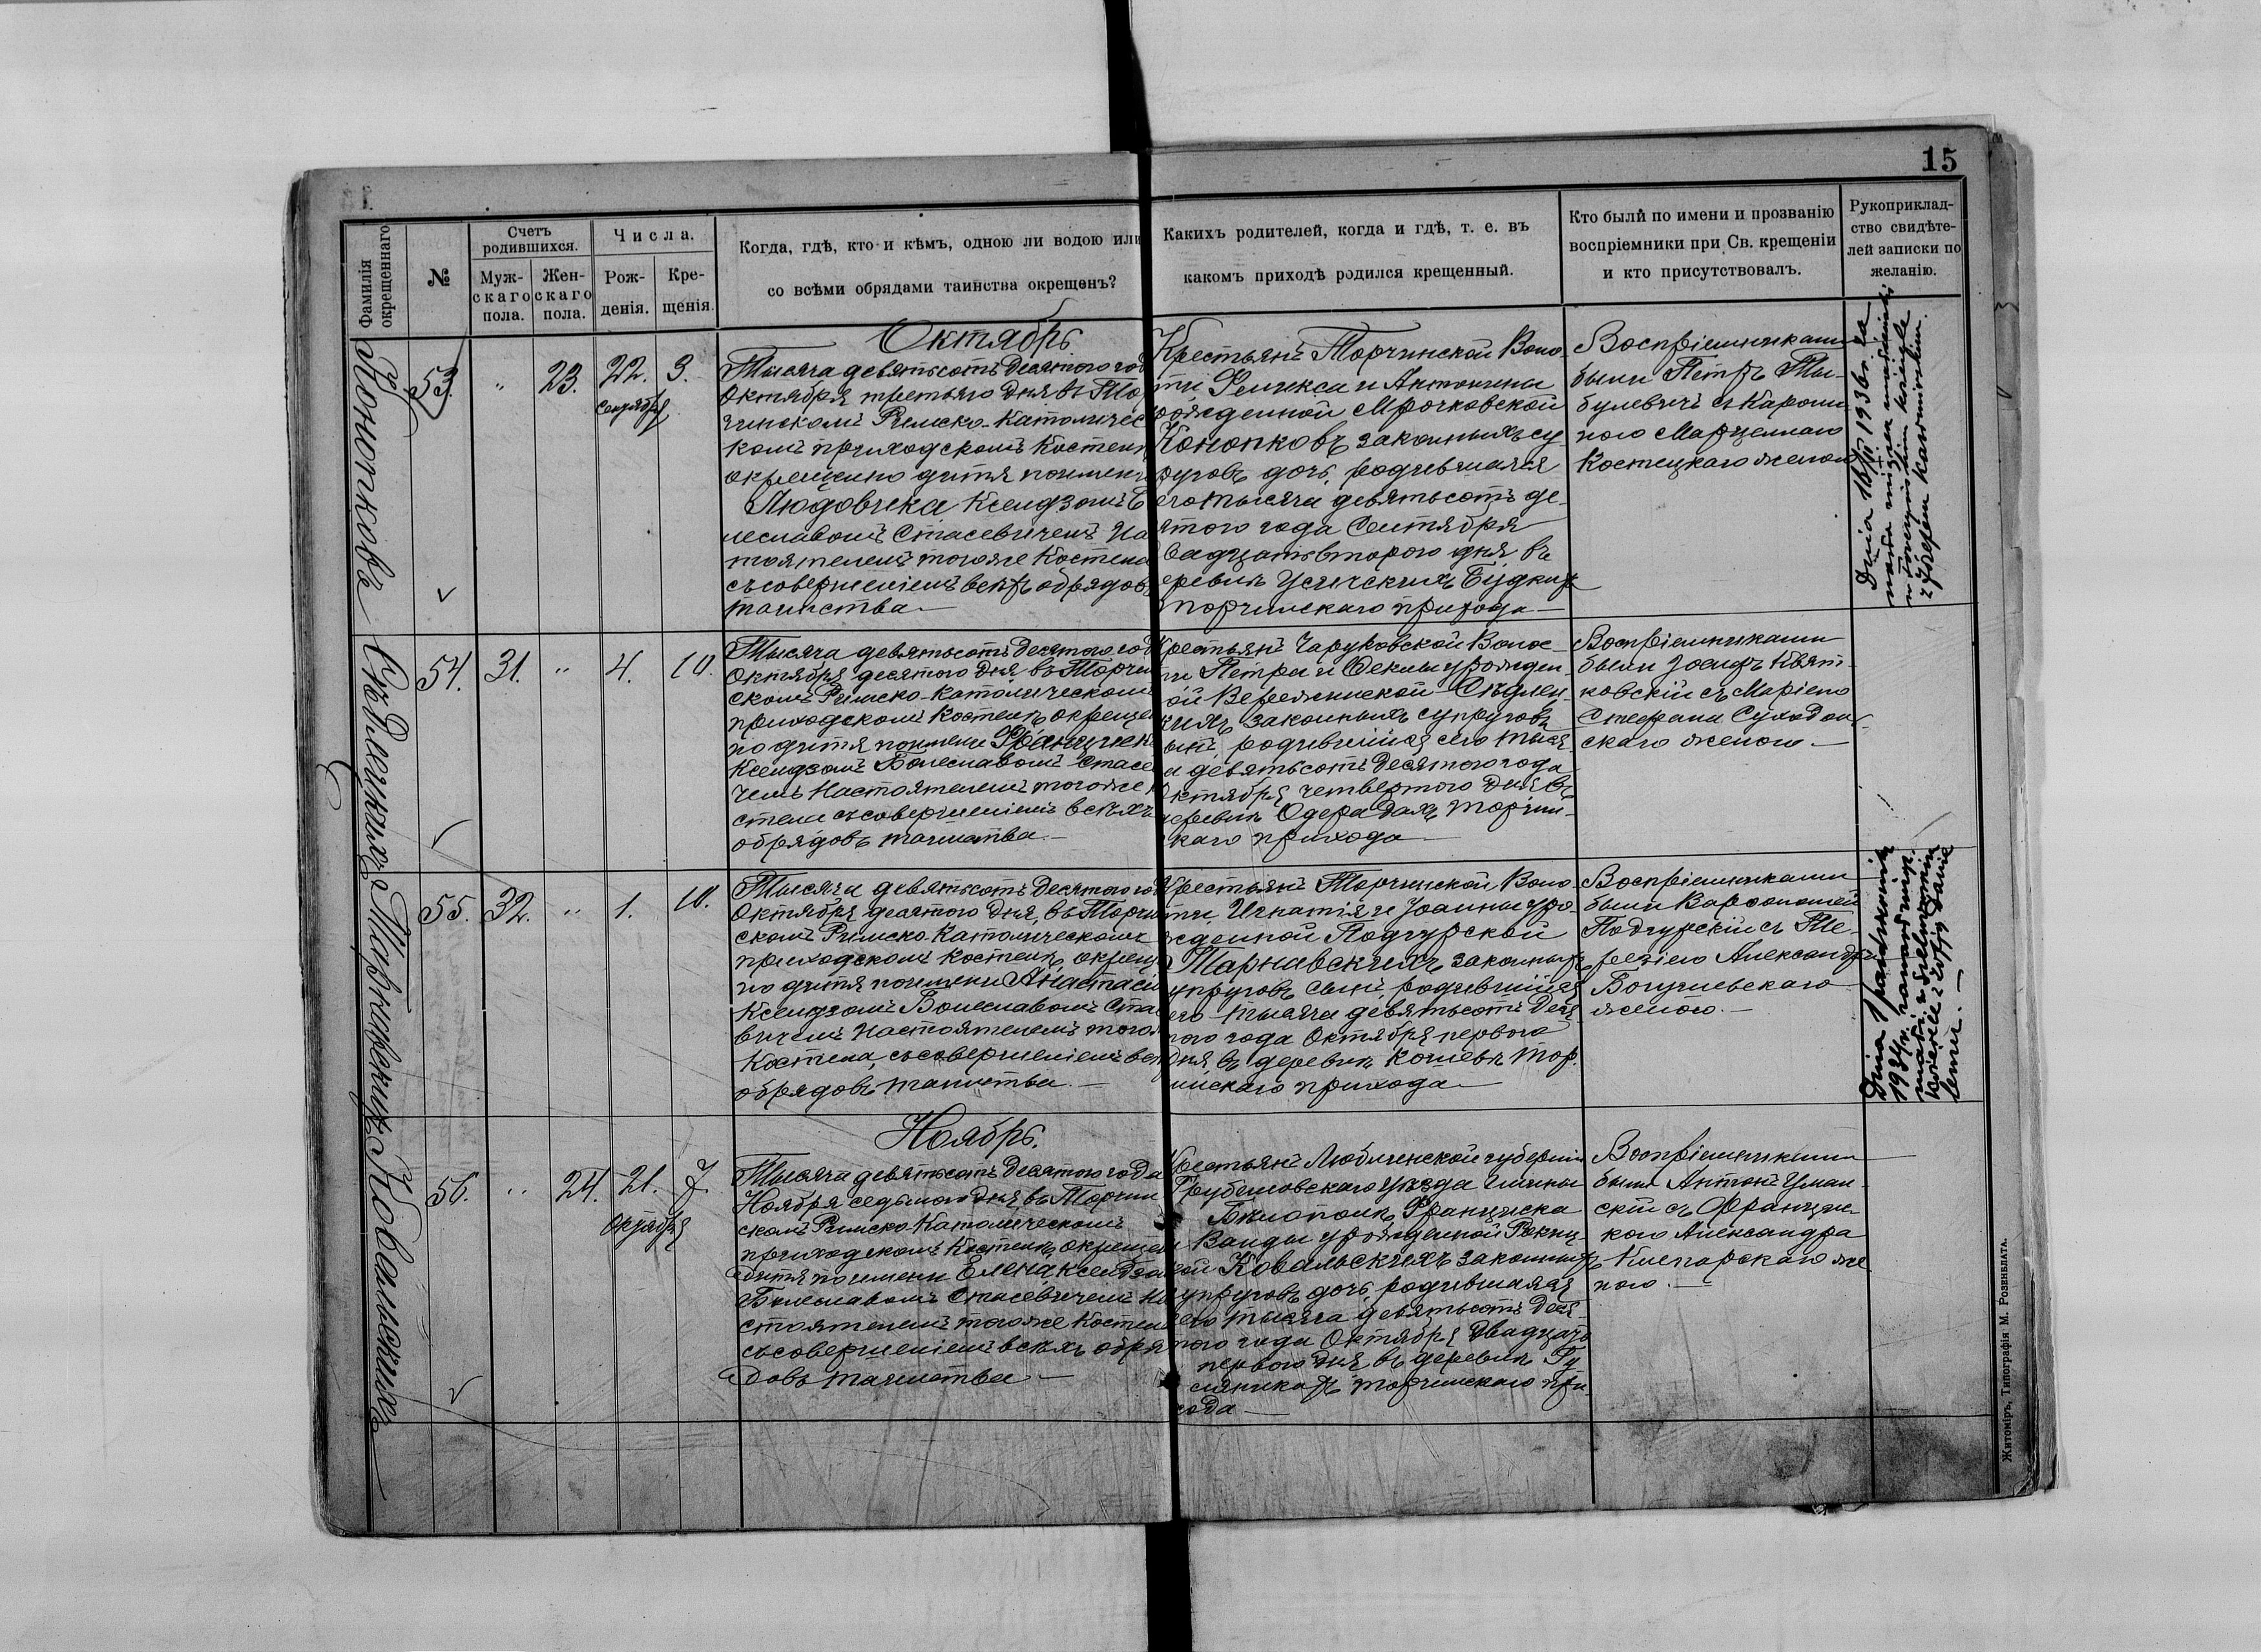 15
Фамилія окрещеннаго
№
Счетъ родившихся.
Муж-
скаго
пола.
Жен-
скаго
пола.
Числа.
Рож-
денія.
Кре-
щенія.
Когда, гдѣ, кто и кѣмъ, одною ли водою или
со всѣми обрядами таинства окрещенъ?
Какихъ родителей, когда и гдѣ, т. е. въ
какомъ приходѣ родился крещенный.
Кто были по имени и прозванію
воспріемники при Св. крещеніи
и кто присутствовалъ.
Рукоприклад-
ство свидѣте-
лей записки по
желанію.
Октябрь
Конопковъ
53. " 23. 22. 3.
Сентября
Тысяча девятьсотъ десятого год
Октября третьяго дня въ Тор
чинскомъ Римско-Католичес
комъ приходскомъ Костелѣ
окрещено дитя поимени
Людовика Ксендзомъ Б
леславомъ Стасевичемъ На
тоятелемъ тогоже Костела
съ совершеніемъ всѣхъ обрядов
таинства.—
Крестьянъ Торчинской Воло
ти Феликса и Антонины
рожденной Мрочковской
Конопковъ законныхъ су
руговъ дочь, родившаяся
его тысяча девятьсотъ де-
ятого года Сентября
вадцать второго дня въ
еревнѣ Усичскихъ Будках
Торчинскаго прихода—
Воспріемниками
были Петръ Ты-
булевичъ съ Кароли
ного Марцеллаго
Костецкаго женою
Dnia 16/II 1936 r. za
54. 31. " 4. 10.
Тысяча девятьсотъ десятого год
Октября десятого дня въ Торчин
скомъ Римско-Католическомъ
приходскомъ Костелѣ окреще
но дитя поимени Францишек
Ксендзомъ Болеславомъ Стасе
чемъ Настоятелемъ тогоже
стела съ совершеніемъ всѣхъ
обрядовъ таинства.—
Крестьянъ Чаруковской Волос-
ти Петра и Феклы урожден
ой Вережинской
кихъ законныхъ супруговъ
ынъ родившійся сего тыся
а девятьсотъ десятого года
Октября четвертого дня въ
деревнѣ Одерадахъ Торчин-
скаго прихода—
Воспріемниками
были Іосифъ Квят-
ковскій съ Маріею
Стефана Суходоль-
скаго женою.—
55. 32. " 1. 10.
Тысяча девятьсотъ десятого го
Октября десятого дня, въ Торчин
скомъ Римско-Католическомъ
приходскомъ Костелѣ, окреще
но дитя поимени Анастасій
Ксендзомъ Болеславомъ Ста
вичемъ Настоятелемъ того
Костела, съ совершеніемъ все
обрядовъ таинства.—
Крестьянъ Торчинской Воло
ти, Игнатія и Іоанны уро-
жденной Подгурской
Тарнавскихъ законных
упруговъ сынъ, родившійся
его тысяча девятьсотъ Деся
того года Октября первого
дня въ деревнѣ Кошевъ Тор
чинскаго прихода—
Воспріемниками
были Варфоломей
Подгурскій съ Те-
резіею Александра
женою.—
Dnia 1 października
1934 r.
Ноябрь.
Ковальскихъ
56. " 24. 21. 7.
Октября
Тысяча девятьсотъ десятого года
Ноября седьмого дня, въ Торчин
скомъ Римско-Католическомъ
приходскомъ Костелѣ, окрещен
дитя поимени Елена, Ксендзо
Болеславомъ Стасевичемъ На
стоятелемъ тогоже Костела
съ совершеніемъ всѣхъ обря
довъ таинства—
Крестьянъ Люблинской губерніи
Грубешовскаго уѣзда гмины
Бѣлополь, Франциска
и Ванды урожденной
кой Ковальскихъ законных
упруговъ дочь, родившаяся
его тысяча девятьсотъ Деся
того года Октября двадцать
первого дня въ деревнѣ Гу
Торчинскаго при
хода—
Воспріемниками
были Антонъ Уман-
скій съ Францис-
кою Александра
Клепарскаго же
ною.—
Житоміръ, Типографія М. Розенблата.